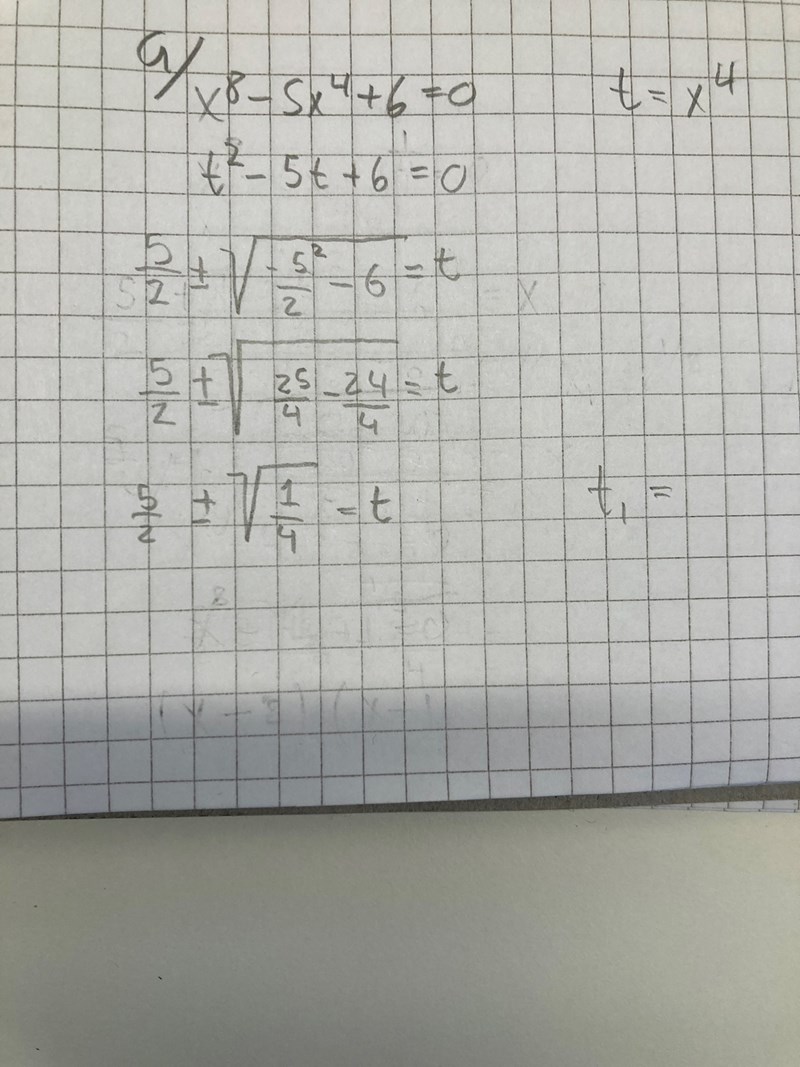 a/
x⁸ - 5x⁴ + 6 = 0 t = x⁴
t² - 5t + 6 = 0
5/2 ± √(-5²/2 - 6) = t
5/2 ± √(25/4 - 24/4) = t
5/2 ± √(1/4) = t t₁ =